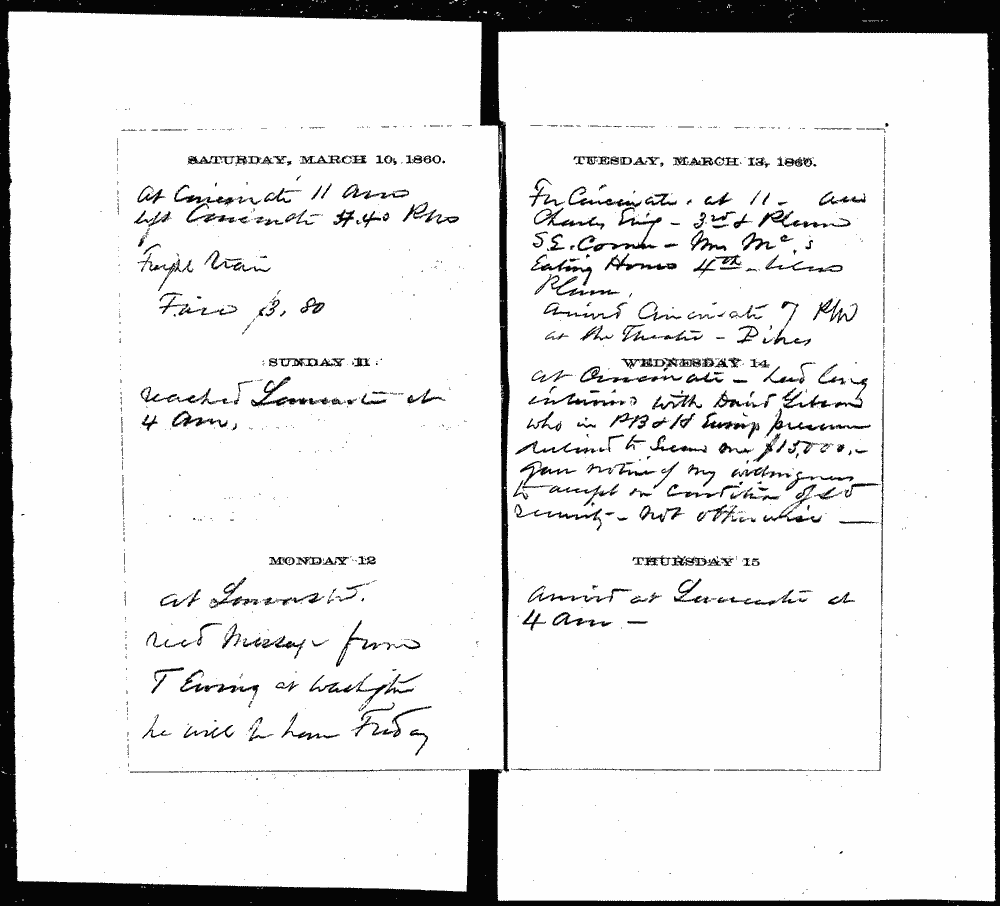 SATURDAY, MARCH 10, 1860.
at Cincinnati 11 am
left Cincinnati 4.40 PM
Freight train
Fare $3.80
SUNDAY 11
reached Lancaster at
4 am.
MONDAY 12
at Lancaster.
recd Message from
T Ewing at Washington
he will be home Friday
TUESDAY, MARCH 13, 1860.
For Cincinnati. at 11 - am
Charles Ewing - 3rd & Plum
S.E. Corner - Mrs Mc.s
Eating House 4th
Plum.
arrived Cincinnati 7 PM
at the Theatre - Pikes
WEDNESDAY 14
at Cincinnati - had long
interview with David Gibson
who in PB & H Ewing presence
declined to secure me $15,000. -
gave notice of my willingness
to accept on condition of
security - not otherwise —
THURSDAY 15
arrived at Lancaster at
4 am —